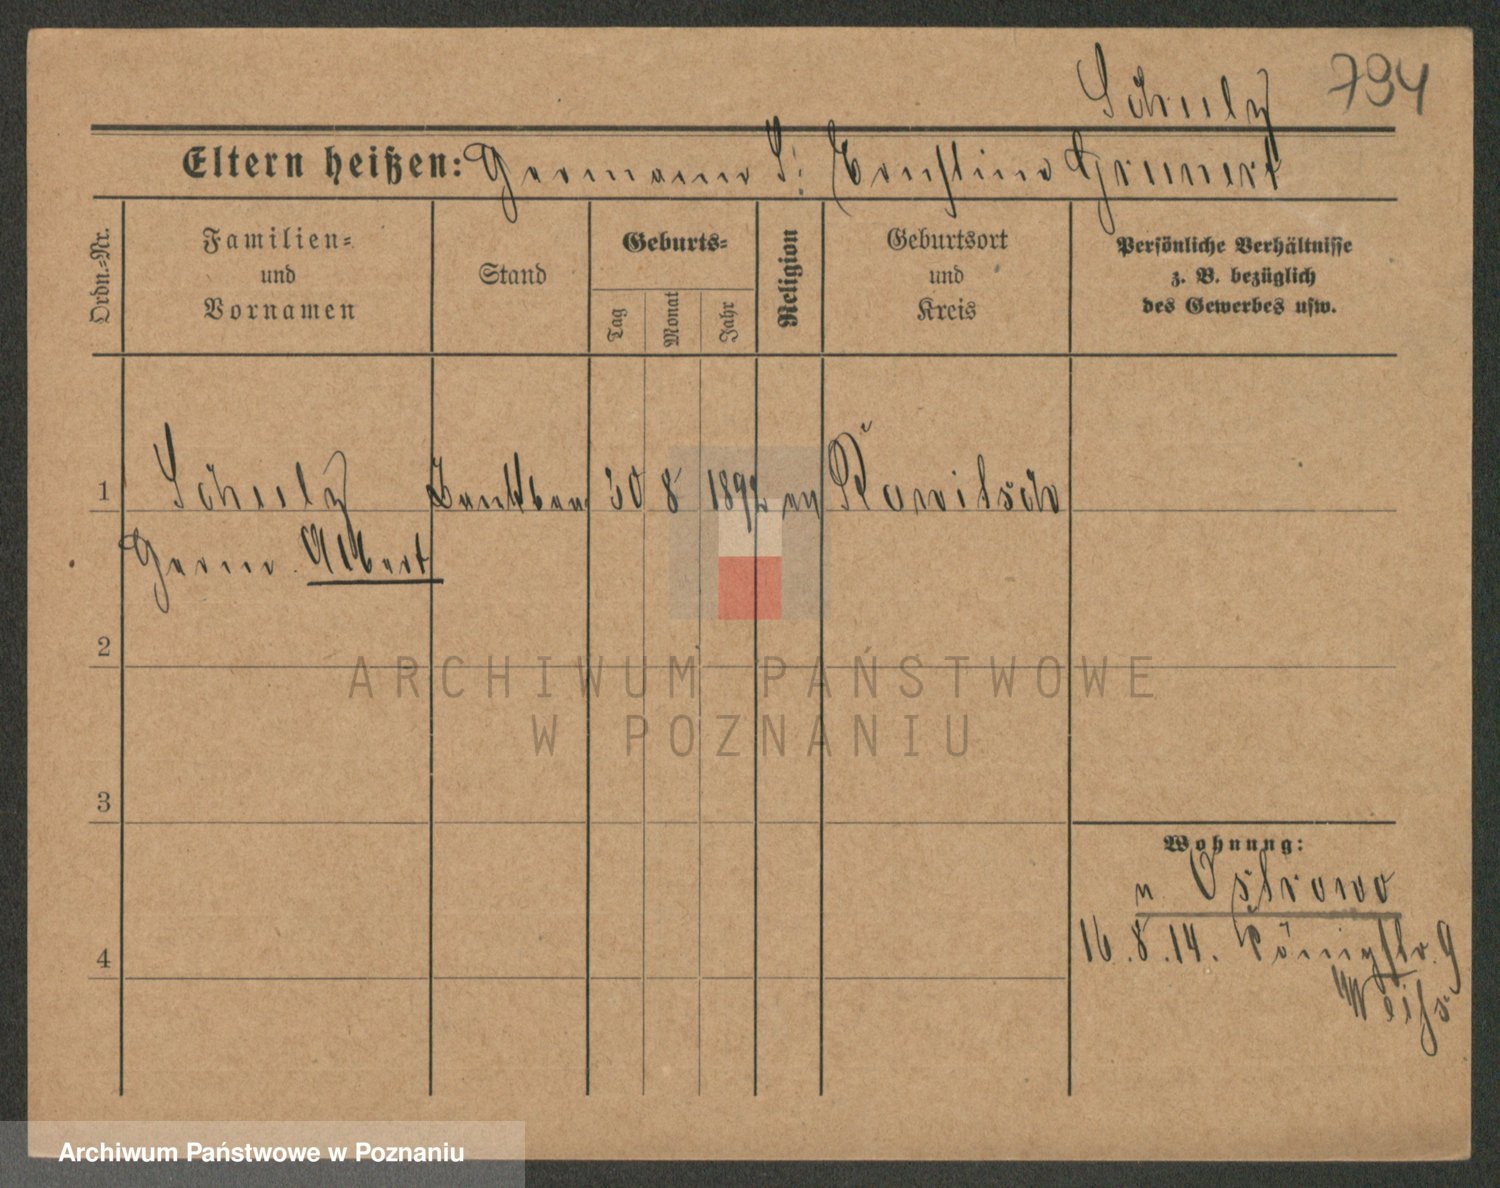 Schulz 794
Eltern heißen: Hermann S: Ernstine Grunert
Ordn.-Nr.
Familien-
und
Vornamen
Stand
Geburts-
Tag
Monat
Jahr
Religion
Geburtsort
und
Kreis
Persönliche Verhältnisse
z. B. bezüglich
des Gewerbes usw.
1 Schulz 30 8 1892 ev Rawitsch
Herm. Albert
2
3
4
Wohnung:
n. Ostrowo
16.8.14. Königstr. 9
Weiss
ARCHIWUM PAŃSTWOWE
W POZNANIU
Archiwum Państwowe w Poznaniu